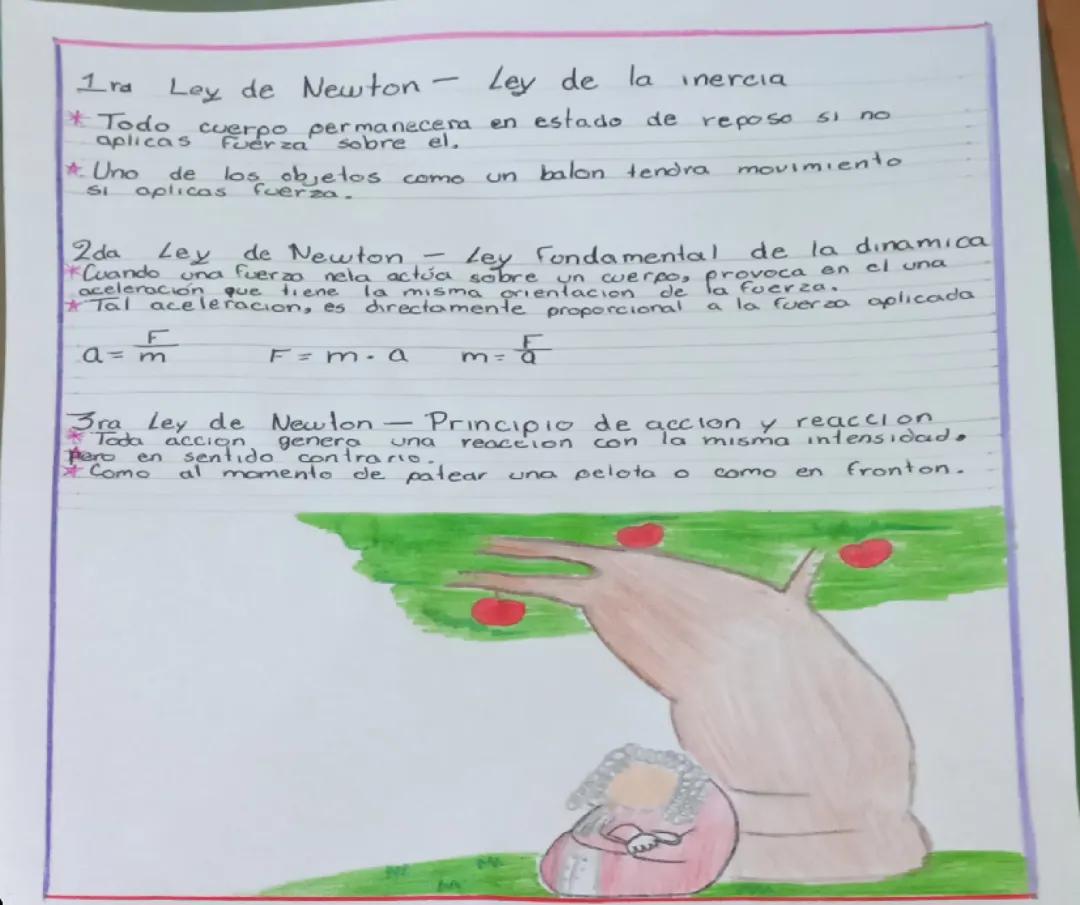 1ra Ley de Newton - Ley de la inercia
* Todo cuerpo permanecera en estado de reposo si no
aplicas fuerza sobre el.
* Uno de los objetos como un balon tendra movimiento
si aplicas fuerza.
2da Ley de Newton - Ley Fundamental de la dinamica
* Cuando una fuerza neta actúa sobre un cuerpo, provoca en el una
aceleración que tiene la misma orientacion de la fuerza.
* Tal aceleracion, es directamente proporcional a la fuerza aplicada
a = F/m F = m · a m = F/a
3ra Ley de Newton - Principio de accion y reaccion
* Toda accion genera una reaccion con la misma intensidad,
pero en sentido contrario.
* Como al momento de patear una pelota o como en fronton.